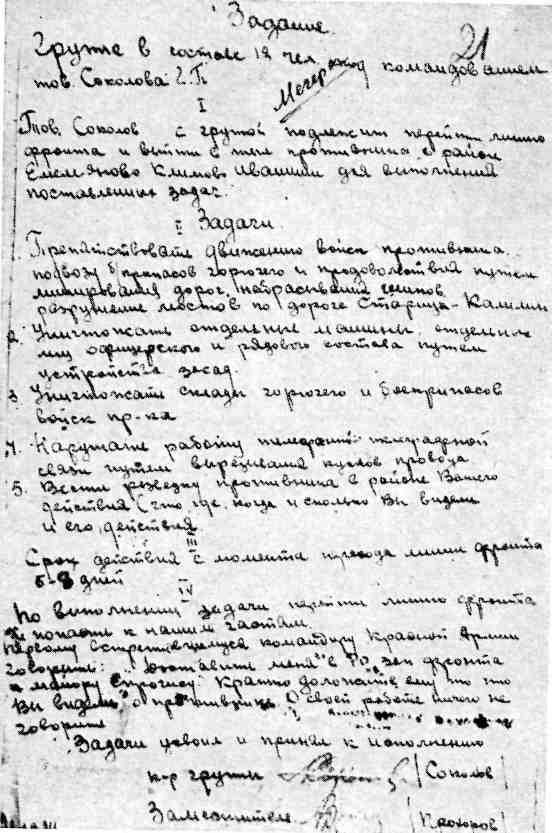 Задание
21
Группе в составе 12 чел. под командованием
тов. Соколова Г. П.
I
Тов. Соколов с группой подлежит перейти линию
фронта и выйти в тыл противника в район
Климово Ивашки для выполнения
поставленных задач.
II Задачи
1. Препятствовать движению войск противника,
подвозу боеприпасов горючего и продовольствия путем
минирования дорог, набрасывания
разрушение мостов по дороге Старица-Калинин
2. Уничтожать отдельные машины, отдельных
лиц офицерского и рядового состава путем
устройства засад.
3. Уничтожать склады горючего и боеприпасов
войск пр-ка
4. Нарушать работу телефонной телеграфной
связи путем вырезывания кусков провода
5. Вести разведку противника в районе Вашего
действия (что, где, когда и сколько Вы видели
и его действия
III
Срок действия с момента перехода линии фронта
6-8 дней
IV
По выполнении задачи перейти линию фронта
и попасть к нашим частям.
Первому встретившемуся командиру Красной Армии
говорите: "Доставьте меня в Р.О. фронта
к майору Кратко доложите ему то что
Вы видели о противнике. О своей работе ничего не
говорите
Задачи усвоил и принял к исполнению
к-р группы (Соколов)
Заместитель (Прохоров)